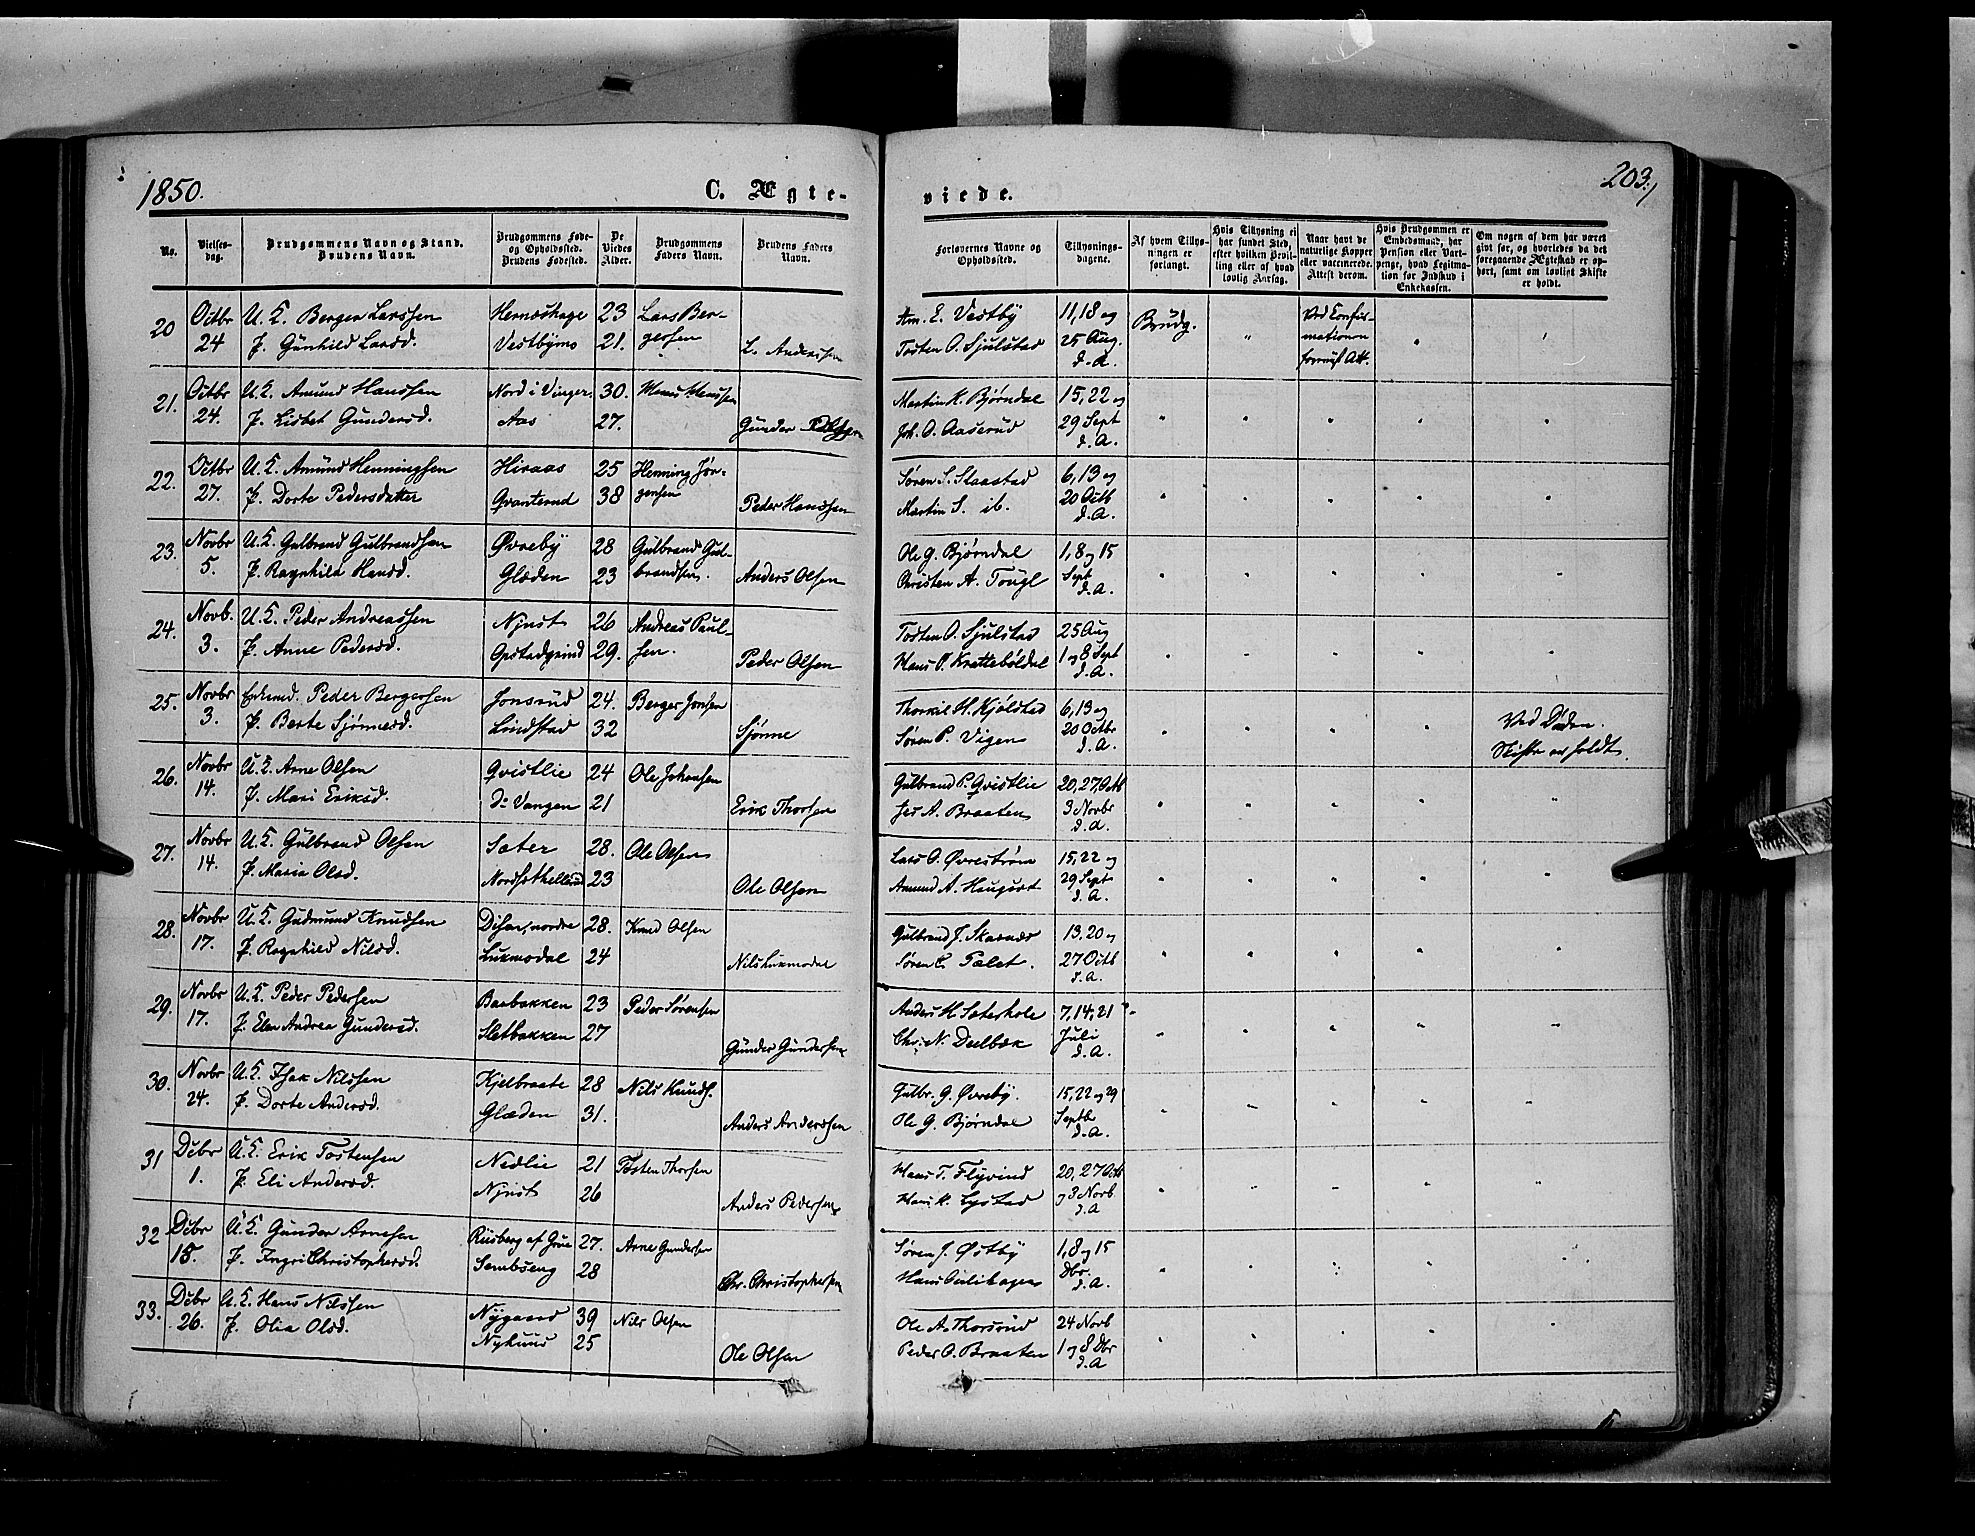 1850.
C. Ægte-
viede.
203.
No.
Vielses-
dag.
Brudgommens Navn og Stand.
Brudens Navn.
Brudgommens Føde-
og Opholdssted.
Brudens Fødested.
De
Viedes
Alder.
Brudgommens
Faders Navn.
Brudens Faders
Navn.
Forlovernes Navne og
Opholdssted.
Tillysnings-
dagene.
Af hvem Tillys-
ningen er
forlangt.
Hvis Tillysning ei
har fundet Sted,
efter hvilken Bevil-
ling eller af hvad
lovlig Aarsag.
Naar havt de
naturlige Kopper
eller vaccinerede.
Attest derom.
Hvis Brudgommen er
Embedsmand, har
Pension eller Vart-
penge, hvad Legitima-
tion for Indskud i
Enkekassen.
Om nogen af dem har været
gift før, og hvorledes da det
foregaaende Ægteskab er op-
hørt, samt om lovligt Skifte
er holdt.
20 Octbr 24 U. K. Berger Larssen Hernæshage 23 Lars Ber-
gersen
P. Gunhild Larsd. Vestbymo 21. L. Anderssen
Am. E. Vestby 11, 18 og
Tosten O. Sjulstad 25 Aug. d. A.
Brudg. " Ved Confir-
mationen
fremv. Att.
21. Octbr 24. U. K. Amund Hanssen Nord i Vinger 30. Hans Hanssen
P. Lisbet Gundersd. Aas 27. Gunder
Martin K. Bjørndal 15, 22 og
Joh. O. Aaserud 29 Sept d. A.
22. Octbr 27. U. K. Amund Henningsen Hiraas 25 Henning Jør-
gensen
P. Dorte Pedersdatter Gvanterud 38 Peder Hansen
Søren S. Slaastad 6, 13 og
Martin S. ib. 20 Octb d. A.
23. Novbr 5. U. K. Gulbrand Gulbrandsen Øvreby 28 Gulbrand Gul-
brandsen.
P. Ragnhild Hansd. Glæden 23 Anders Olsen
Ole G. Bjørndal 1, 8 og 15
Christen A. Tougl Sept d. A.
24. Novb. 3. U. K. Peder Andreassen Njust 26 Andreas Paul-
sen.
P. Anne Pedersd. Opstadgrind 29. Peder Olsen
Tosten O. Sjulstad 25 Aug
Hans O. Krattebøldal 1 og 8 Sept d. A.
25. Novbr 3. Enkemd. Peder Bergersen Jonsrud 24. Berger Jonsen
P. Berte Sjønnesd. Lindstad 32 Sjønne
Thorkil H. Kjølstad 6, 13 og
Søren P. Vigen 20 Octbr d. A.
Ved Døden.
Skifte er holdt.
26. Novbr 14. U. K. Arne Olsen Qvistlie 24 Ole Johansen
P. Mari Eriksd. d: Vangen 21 Erik Thorsen
Gulbrand P. Qvistlie 20, 27, Octb
Jes A. Braaten 3 Novbr d. A.
27. Novbr 14. U. K. Gulbrand Olsen Sæter 28. Ole Olsen
P. Maria Olsd. 23 Ole Olsen
Lars O. Øvrestrøm 15, 22 og
Amund A. Haugsæt 29 Sept d. A.
28. Novbr 17. U. K. Gudmund Knudsen Disen, nordre 28. Knud Olsen
P. Ragnhild Nilsd. Luxmodal 24 Nils Luxmodal
Gulbrand J. Skarnæs 13, 20 og
Søren C. Tælet. 27 Octb d. A.
29. Novbr 17. U. K. Peder Pedersen Barbakken 23 Peder Sørensen
P. Elen Andrea Gundersd. Sletbakken 27 Gunder Gundersen
Anders H. Sæterhole 7, 14, 21
Chr. N. Deelbæk Juli d. A.
30. Novbr 24. U. K. Isak Nilssen Kjelbraate 28 Nils Knuds.
P. Dorte Andersd. Glæden 31. Anders Anderssen
Gulbr. G. Øvreby. 15, 22 og 29
Ole G. Bjørndal Septb d. A.
31 Debr 1. U. K. Erik Tostensen Nedlie 21 Tosten Thorsen
P. Eli Andersd. Njust 26 Anders Pedersen
Hans T. Flyvind 20, 27 Octb
Hans K. Lystad og 3 Novb. d. A
32 Debr 15. U. K. Gunder Arnesen Riisberg af Grue 27. Arne Gundersen
P. Ingri Christophersd. Sembseng 28 Chr. Christophersen
Søren J. Østby 1, 8 og 15
Hans Dbr. d. A.
33. Debr 26. U. K. Hans Nilssen Nygaard 39 Nils Olsen
P. Olia Olsd. Nykuus 25 Ole Olsen
Ole A. Thorsrud 24 Novb
Peder O. Braaten 1 og 8 Dbr d. A